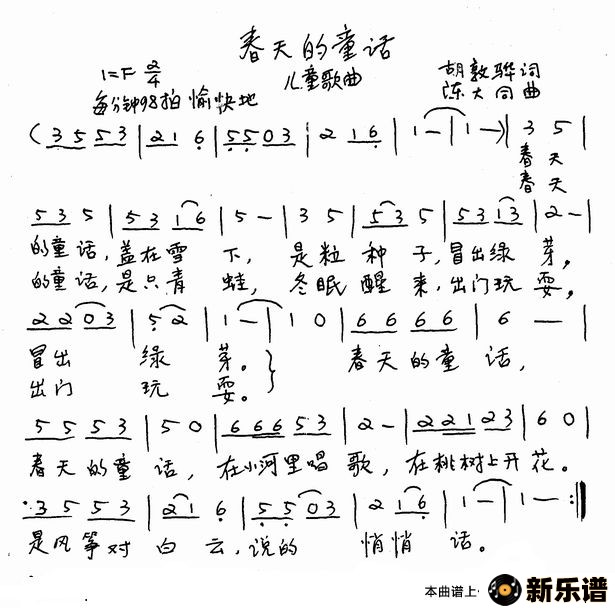 春天的童话
1=F 2/4
儿童歌曲
胡敦骅 词
每分钟98拍 愉快地
陈大同 曲
(3 5 5 3 | 2 1 6 | 5 5 0 3 | 2 1 6 | 1 — | 1 —) | 3 5 |
春 天
春 天
5 3 5 | 5 3 1 6 | 5 — | 3 5 | 5 3 5 | 5 3 1 3 | 2 — |
的童话,盖在雪 下, 是粒 种 子,冒出绿 芽,
的童话,是只青 蛙, 冬眠 醒 来,出门玩 耍,
2 2 0 3 | 5 2 | 1 — | 1 0 | 6 6 6 6 | 6 — |
冒出 绿 芽。} 春天的童 话,
出门 玩 耍。
5 5 5 3 | 5 0 | 6 6 6 5 3 | 2 — | 2 2 1 2 3 | 6 0 |
春天的童 话, 在小河里唱 歌, 在桃树上开 花。
3 5 5 3 | 2 1 6 | 5 5 0 3 | 2 1 6 | 1 — | 1 — :‖
是风筝对 白 云,说的 悄悄 话。
本曲谱上 新乐谱